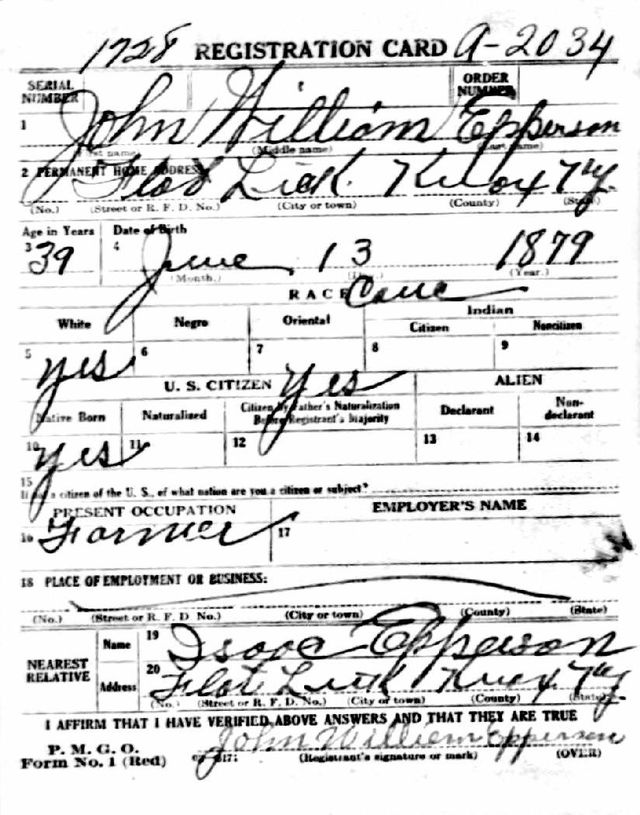 1728 REGISTRATION CARD A-2034
SERIAL NUMBER ORDER NUMBER
1 John William Epperson
First name) (Middle name) (Last name)
2 PERMANENT HOME ADDRESS
Flat Lick. Knox Ky.
(No.) (Street or R. F. D. No.) (City or town) (County) (State)
Age in Years Date of Birth
3 39 4 June 13 1879
(Month.) (Day.) (Year.)
RACE Cauc
White Negro Oriental Indian
Citizen Noncitizen
5 yes 6 7 8 9
U. S. CITIZEN Yes ALIEN
Native Born Naturalized Citizen by Father's Naturalization Before Registrant's Majority Declarant Non-declarant
10 yes 11 12 13 14
15
If not a citizen of the U. S., of what nation are you a citizen or subject?
PRESENT OCCUPATION EMPLOYER'S NAME
16 Farmer 17
18 PLACE OF EMPLOYMENT OR BUSINESS:
(No.) (Street or R. F. D. No.) (City or town) (County) (State)
NEAREST RELATIVE Name 19 Isaac Epperson
Address 20 Flat Lick Knox Ky
(No.) (Street or R. F. D. No.) (City or town) (County) (State)
I AFFIRM THAT I HAVE VERIFIED ABOVE ANSWERS AND THAT THEY ARE TRUE
P. M. G. O. John William Epperson
Form No. 1 (Red) (Registrant's signature or mark) (OVER)